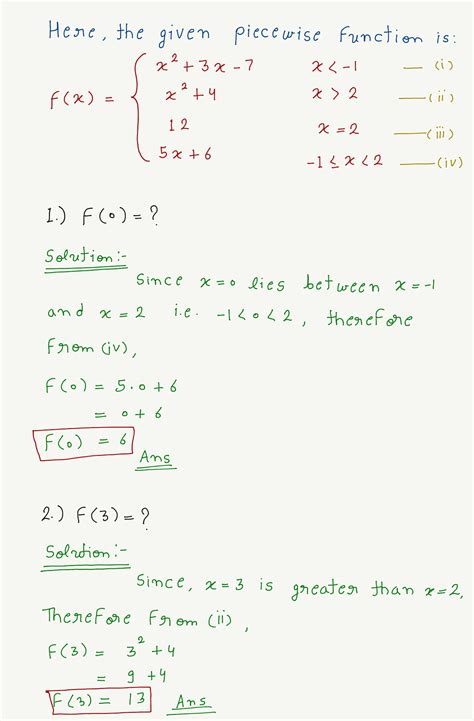 Here, the given piecewise function is:
f(x) = { x² + 3x - 7 x < -1 — (i)
x² + 4 x > 2 — (ii)
12 x = 2 — (iii)
5x + 6 -1 ≤ x < 2 — (iv)
1.) f(0) = ?
Solution:-
Since x = 0 lies between x = -1
and x = 2 i.e. -1 < 0 < 2, therefore
from (iv),
f(0) = 5.0 + 6
= 0 + 6
f(0) = 6 Ans
2.) f(3) = ?
Solution:-
Since, x = 3 is greater than x = 2,
Therefore from (ii),
f(3) = 3² + 4
= 9 + 4
f(3) = 13 Ans